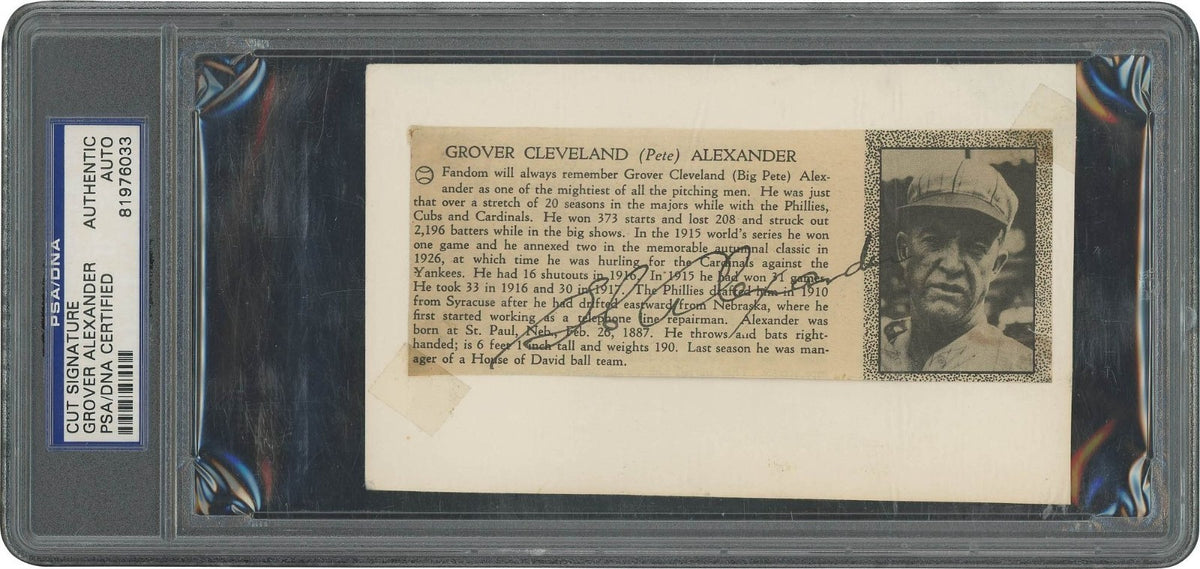 PSA/DNA
CUT SIGNATURE
GROVER ALEXANDER
PSA/DNA CERTIFIED
AUTHENTIC
AUTO
81976033
GROVER CLEVELAND (Pete) ALEXANDER
Fandom will always remember Grover Cleveland (Big Pete) Alex-
ander as one of the mightiest of all the pitching men. He was just
that over a stretch of 20 seasons in the majors while with the Phillies,
Cubs and Cardinals. He won 373 starts and lost 208 and struck out
2,196 batters while in the big shows. In the 1915 world's series he won
one game and he annexed two in the memorable autumnal classic in
1926, at which time he was hurling for the Cardinals against the
Yankees. He had 16 shutouts in 1916. In 1915 he had won 31 games.
He took 33 in 1916 and 30 in 1917. The Phillies drafted him in 1910
from Syracuse after he had drifted eastward from Nebraska, where he
first started working as a telephone line repairman. Alexander was
born at St. Paul, Neb., Feb. 26, 1887. He throws and bats right-
handed; is 6 feet 1 inch tall and weights 190. Last season he was man-
ager of a House of David ball team.
G C Alexander